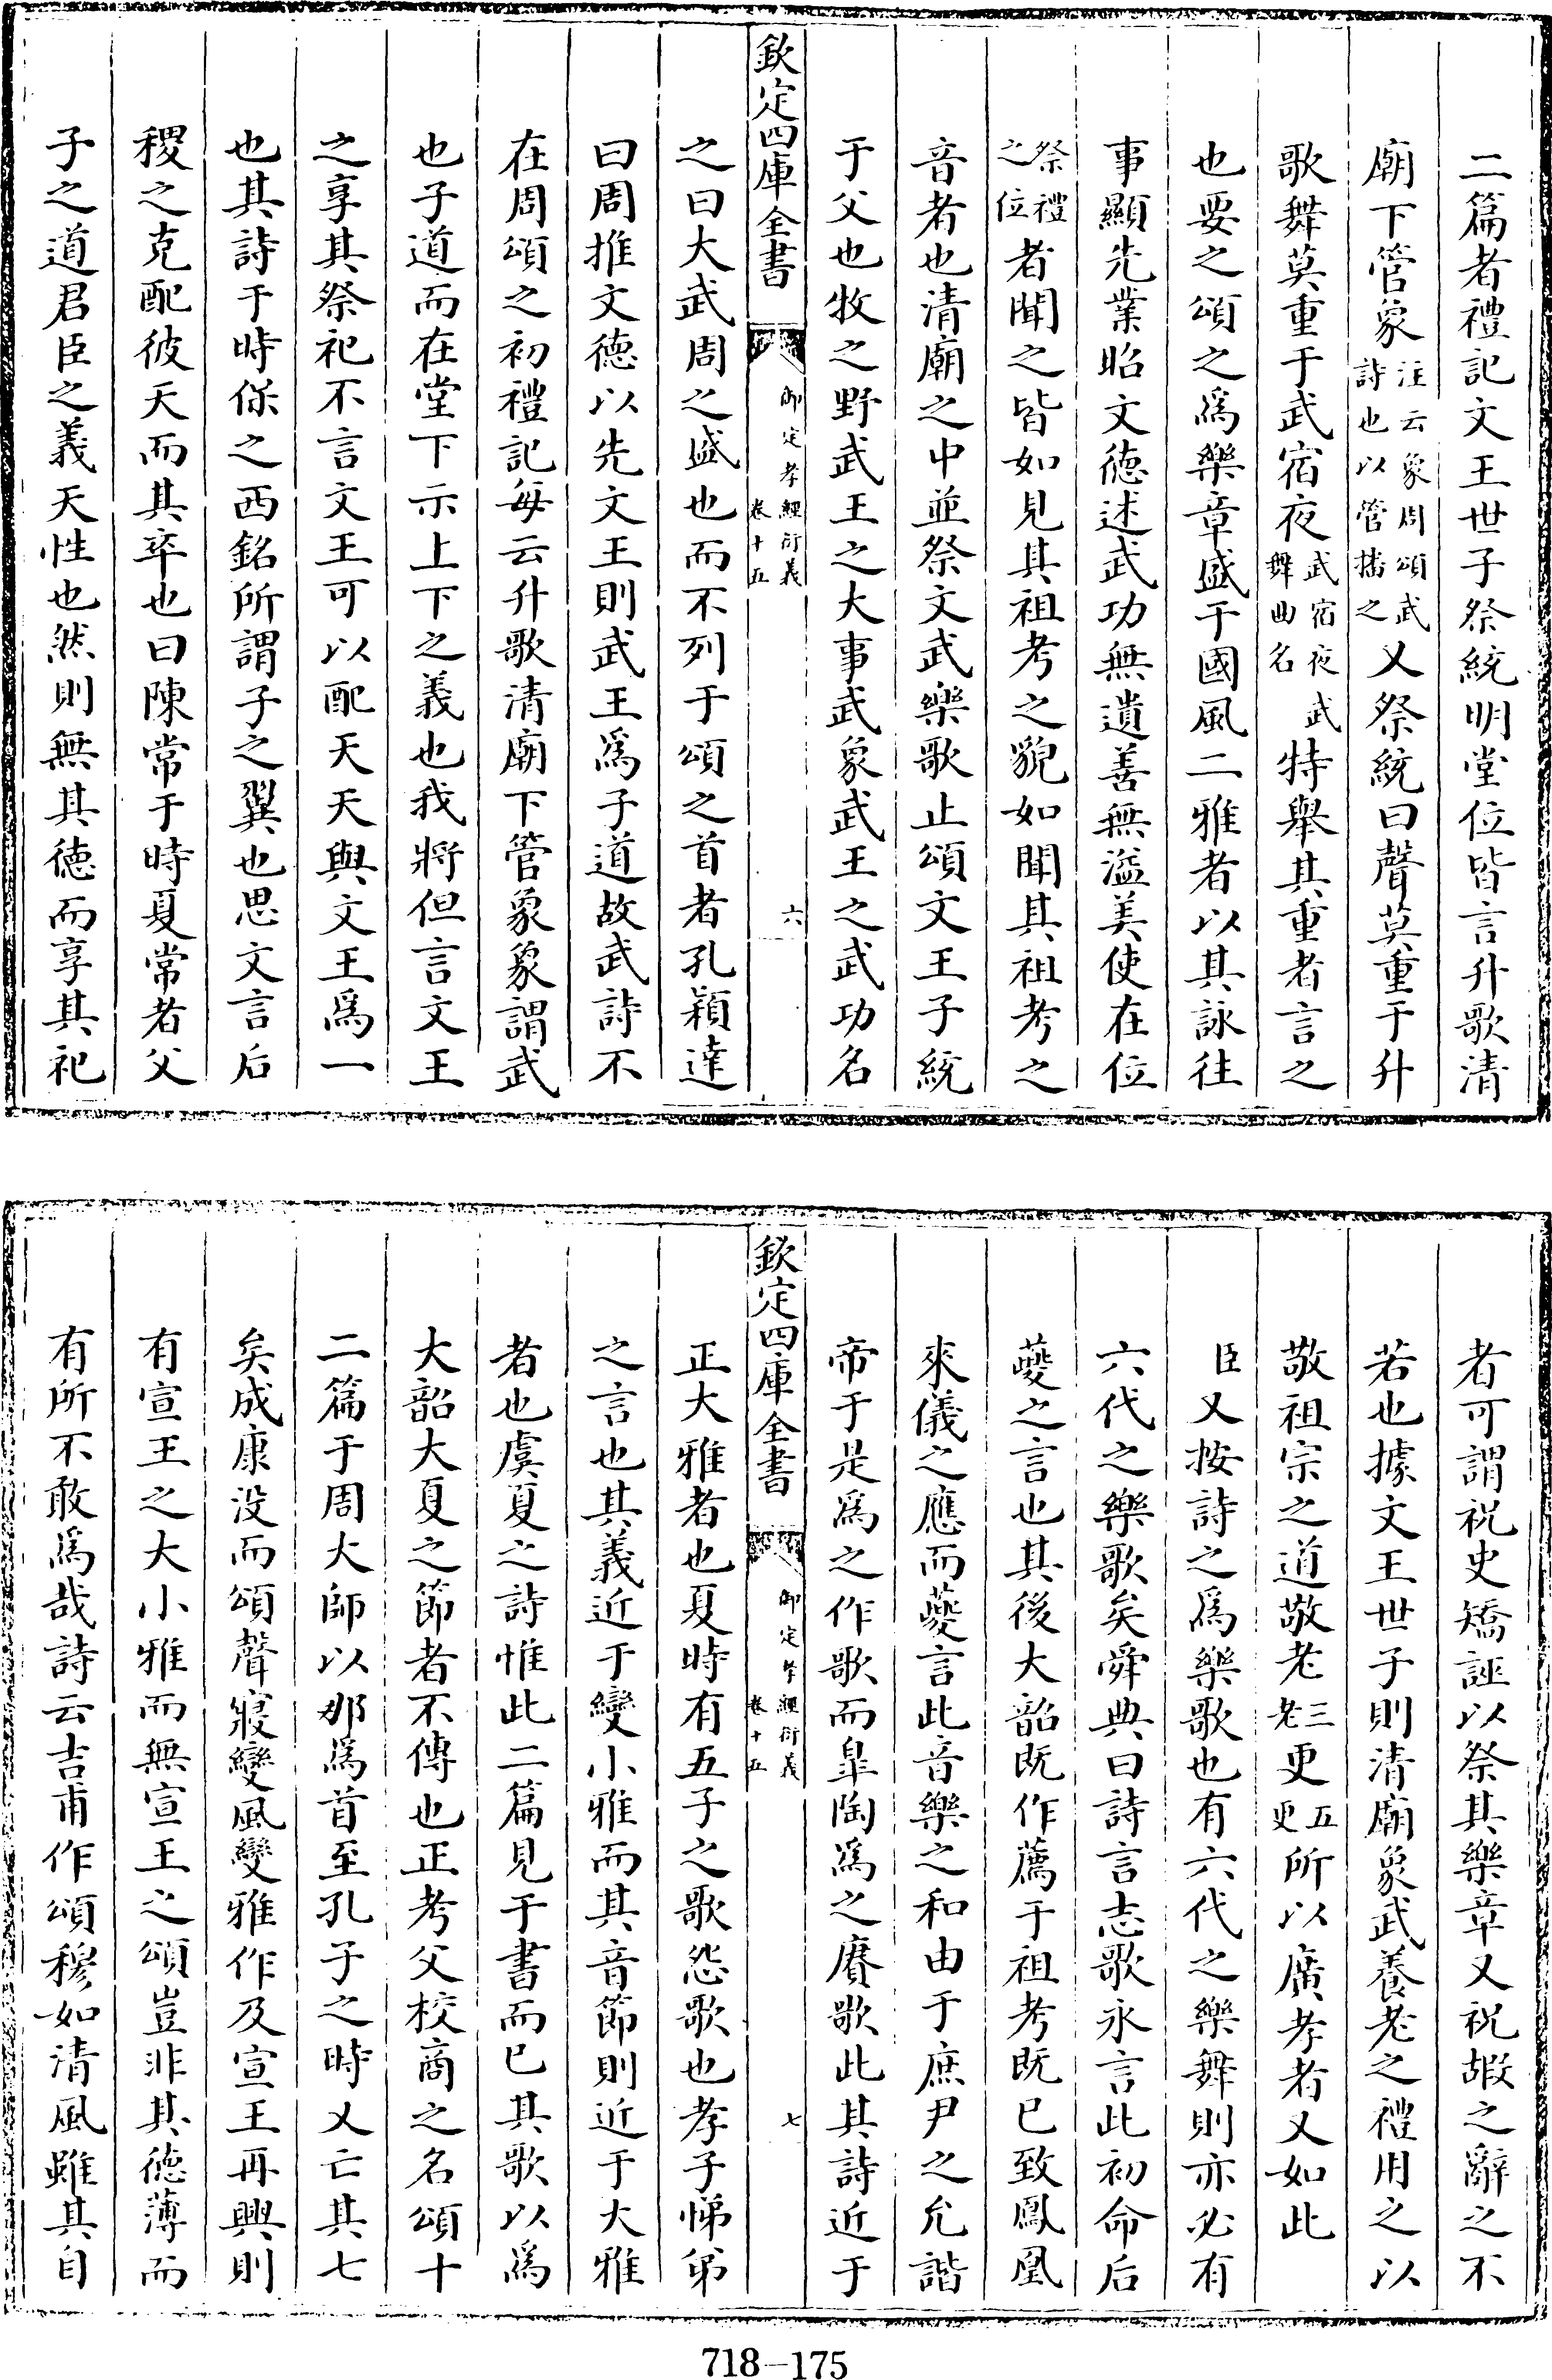 二篇者禮記文王世子祭統明堂位皆言升歌清
廟下管象注云象周頌武詩也以管播之又祭統曰聲莫重于升
歌舞莫重于武宿夜武宿夜武舞曲名特舉其重者言之
也要之頌之為樂章盛于國風二雅者以其詠往
事顯先業昭文德述武功無遺善無溢美使在位
祭禮之位者聞之皆如見其祖考之貌如聞其祖考之
音者也清廟之中並祭文武樂歌止頌文王子統
于父也牧之野武王之大事武象武王之武功名
欽定四庫全書 御定孝經衍義 卷十五 六
之曰大武周之盛也而不列于頌之首者孔穎達
曰周推文德以先文王則武王為子道故武詩不
在周頌之初禮記每云升歌清廟下管象象謂武
也子道而在堂下示上下之義也我將但言文王
之享其祭祀不言文王可以配天天與文王為一
也其詩于時保之西銘所謂子之翼也思文言后
稷之克配彼天而其卒也曰陳常于時夏常者父
子之道君臣之義天性也然則無其德而享其祀
者可謂祝史矯誣以祭其樂章又祝嘏之辭之不
若也據文王世子則清廟象武養老之禮用之以
敬祖宗之道敬老三老更五更所以廣孝者又如此
臣又按詩之為樂歌也有六代之樂舞則亦必有
六代之樂歌矣舜典曰詩言志歌永言此初命后
夔之言也其後大韶既作薦于祖考既已致鳳凰
來儀之應而夔言此音樂之和由于庶尹之允諧
帝于是為之作歌而臯陶為之賡歌此其詩近于
欽定四庫全書 御定孝經衍義 卷十五 七
正大雅者也夏時有五子之歌怨歌也孝子悌弟
之言也其義近于變小雅而其音節則近于大雅
者也虞夏之詩惟此二篇見于書而已其歌以為
大韶大夏之節者不傳也正考父校商之名頌十
二篇于周大師以那為首至孔子之時又亡其七
矣成康没而頌聲寢變風變雅作及宣王再興則
有宣王之大小雅而無宣王之頌豈非其德薄而
有所不敢為哉詩云吉甫作頌穆如清風雖其自
718—175